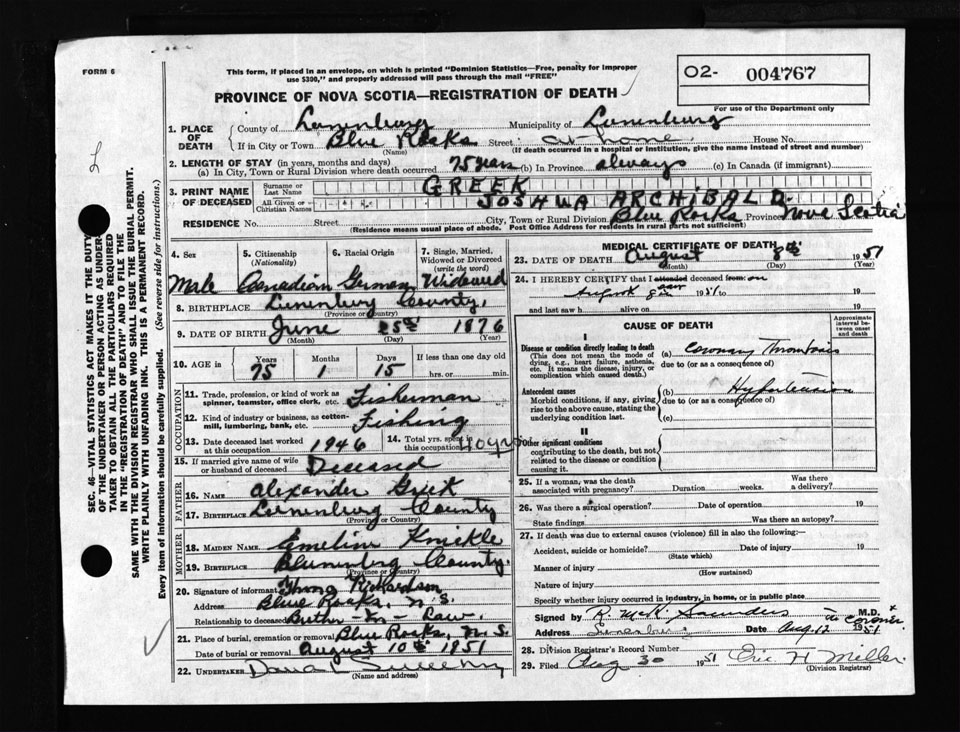 FORM 6
This form, if placed in an envelope, on which is printed "Dominion Statistics—Free, penalty for improper
use $300," and properly addressed will pass through the mail "FREE"
PROVINCE OF NOVA SCOTIA—REGISTRATION OF DEATH
02- 004767
For use of the Department only
L
SEC. 46— VITAL STATISTICS ACT MAKES IT THE DUTY
OF THE UNDERTAKER OR PERSON ACTING AS UNDER-
TAKER TO OBTAIN ALL THE PARTICULARS REQUIRED
IN THE "REGISTRATION OF DEATH" AND TO FILE THE
SAME WITH THE DIVISION REGISTRAR WHO SHALL ISSUE THE BURIAL PERMIT.
WRITE PLAINLY WITH UNFADING INK. THIS IS A PERMANENT RECORD.
Every item of information should be carefully supplied. (See reverse side for instructions.)
1. PLACE OF DEATH County of Lunenburg Municipality of Lunenburg
If in City or Town Blue Rocks Street at Home House No.
(Name) (If death occurred in a hospital or institution, give the name instead of street and number)
2. LENGTH OF STAY (in years, months and days)
(a) In City, Town or Rural Division where death occurred 75 years (b) In Province always (c) In Canada (if immigrant)
3. PRINT NAME OF DECEASED Surname or Last Name GREEK
All Given or Christian Names JOSHUA ARCHIBALD
RESIDENCE No. Street City, Town or Rural Division Blue Rocks Province Nova Scotia
(Residence means usual place of abode. Post Office Address for residents in rural parts not sufficient)
4. Sex 5. Citizenship (Nationality) 6. Racial Origin 7. Single, Married, Widowed or Divorced (write the word)
Male Canadian German Widowed
8. BIRTHPLACE Lunenburg County.
(Province or Country)
9. DATE OF BIRTH June 25th 1876
(Month) (Day) (Year)
10. AGE in Years 75 Months 1 Days 15 If less than one day old
hrs. or min.
OCCUPATION
11. Trade, profession, or kind of work as spinner, teamster, office clerk, etc. Fisherman
12. Kind of industry or business, as cotton-mill, lumbering, bank, etc. Fishing
13. Date deceased last worked at this occupation 1946 14. Total yrs. spent in this occupation 40 yrs
15. If married give name of wife or husband of deceased Deceased
FATHER
16. NAME Alexander Greek
17. BIRTHPLACE Lunenburg County
(Province or Country)
MOTHER
18. MAIDEN NAME Emeline Knickle
19. BIRTHPLACE Lunenburg County.
(Province or Country)
20. Signature of informant Richardson
Address Blue Rocks, N.S.
Relationship to deceased Brother-In-Law.
21. Place of burial, cremation or removal Blue Rocks, N.S.
Date of burial or removal August 10th 1951
22. UNDERTAKER Sweeny
(Name and address)
MEDICAL CERTIFICATE OF DEATH
23. DATE OF DEATH August 8th 1951
(Month) (Day) (Year)
24. I HEREBY CERTIFY that I attended saw deceased from on
August 8th 1951 to 19
and last saw h alive on 19
CAUSE OF DEATH
Approximate interval between onset and death
I
Disease or condition directly leading to death (a) Coronary Thrombosis
(This does not mean the mode of dying, e.g., heart failure, asthenia, etc. It means the disease, injury, or complication which caused death.)
due to (or as a consequence of)
Antecedent causes (b) Hypertension
Morbid conditions, if any, giving rise to the above cause, stating the underlying condition last.
due to (or as a consequence of)
(c)
II
Other significant conditions contributing to the death, but not related to the disease or condition causing it.
25. If a woman, was the death associated with pregnancy? Duration weeks. Was there a delivery?
26. Was there a surgical operation? Date of operation 19
State findings Was there an autopsy?
27. If death was due to external causes (violence) fill in also the following:—
Accident, suicide or homicide? Date of injury 19
(State which)
Manner of injury
(How sustained)
Nature of injury
Specify whether injury occurred in industry, in home, or in public place
Signed by R. McK. Saunders M.D. &
Coroner.
Address Lunenburg Date Aug. 12 1951
28. Division Registrar's Record Number
29. Filed Aug 30 1951 Eric H Miller.
(Division Registrar)